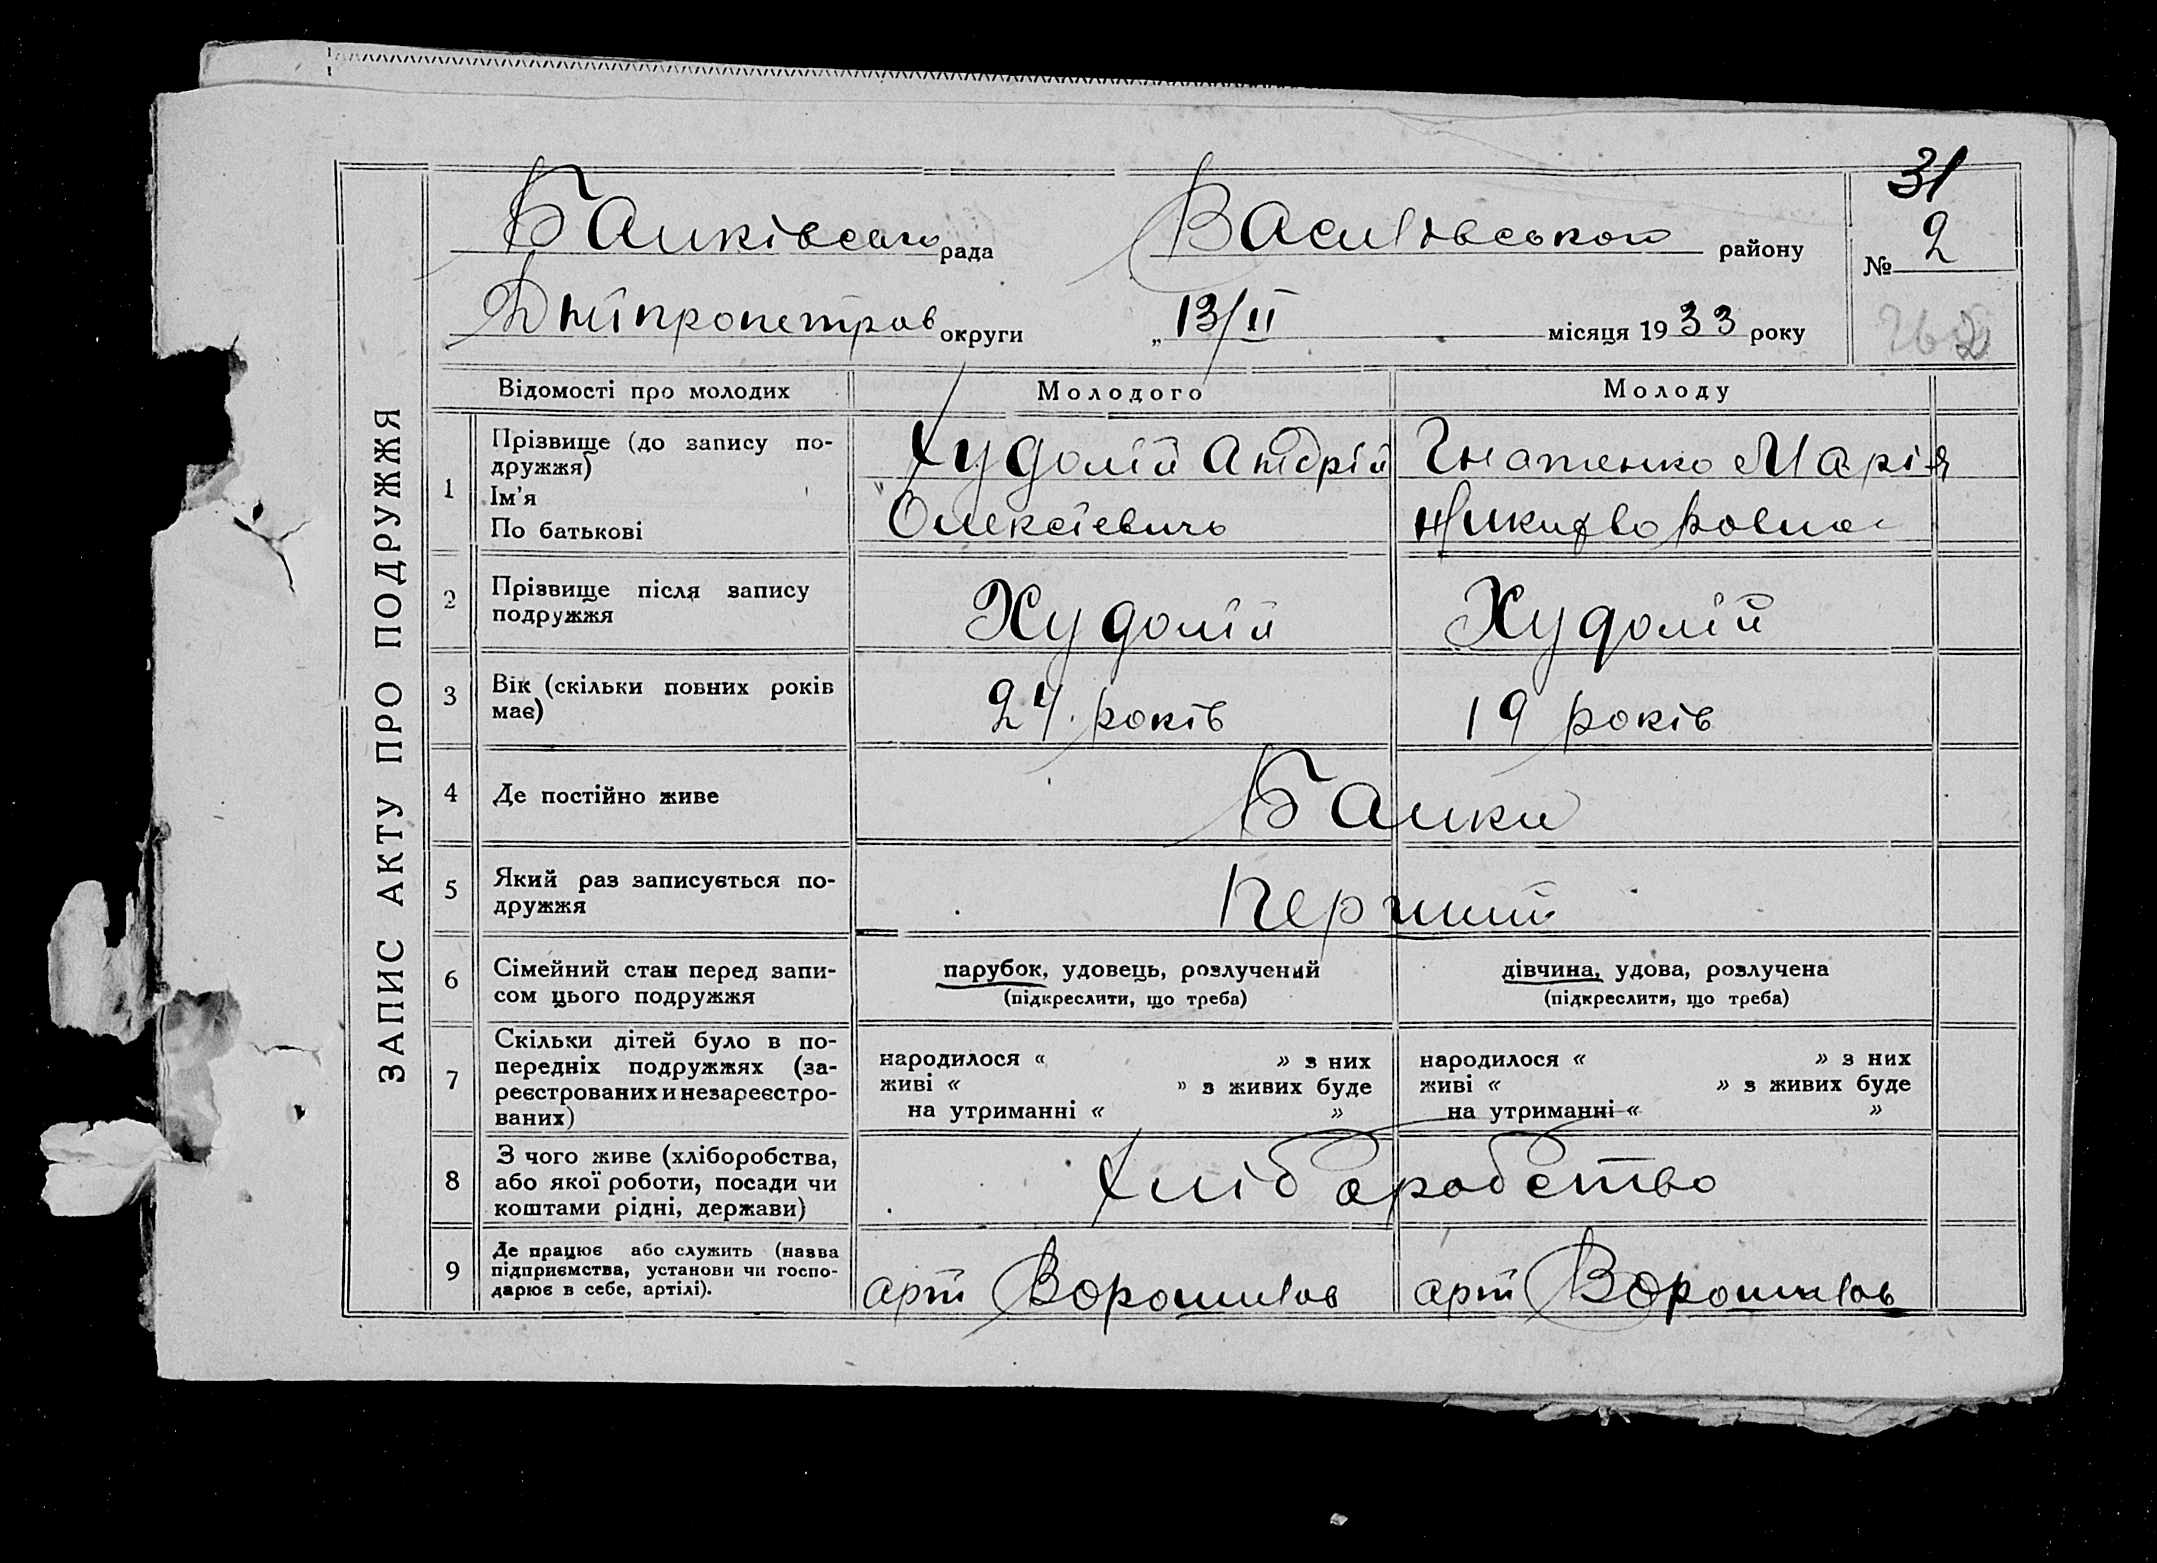 31
Балківська рада Василівського району № 2
Дніпропетров округи „13/II місяця 1933 року
ЗАПИС АКТУ ПРО ПОДРУЖЖЯ
Відомості про молодих Молодого Молоду
1 Прізвище (до запису по-
дружжя)
Ім'я
По батькові
Худолій Андрій
Олексієвичь
Гнатенко Марія
Никифоровна
2 Прізвище після запису
подружжя
Худолій Худолій
3 Вік (скільки повних років
має)
24 років 19 років
4 Де постійно живе Балки
5 Який раз записується по-
дружжя
Перший
6 Сімейний стан перед запи-
сом цього подружжя
парубок, удовець, розлучений
(підкреслити, що треба)
дівчина, удова, розлучена
(підкреслити, що треба)
7 Скільки дітей було в по-
передніх подружжях (за-
реєстрованих и незареєстро-
ваних)
народилося « » з них
живі « » з живих буде
на утриманні « »
народилося « » з них
живі « » з живих буде
на утриманні « »
8 З чого живе (хліборобства,
або якої роботи, посади чи
коштами рідні, держави)
Хліборобство
9 Де працює або служить (назва
підприємства, установи чи госпо-
дарює в себе, артілі).
арт Ворошилов арт Ворошилов